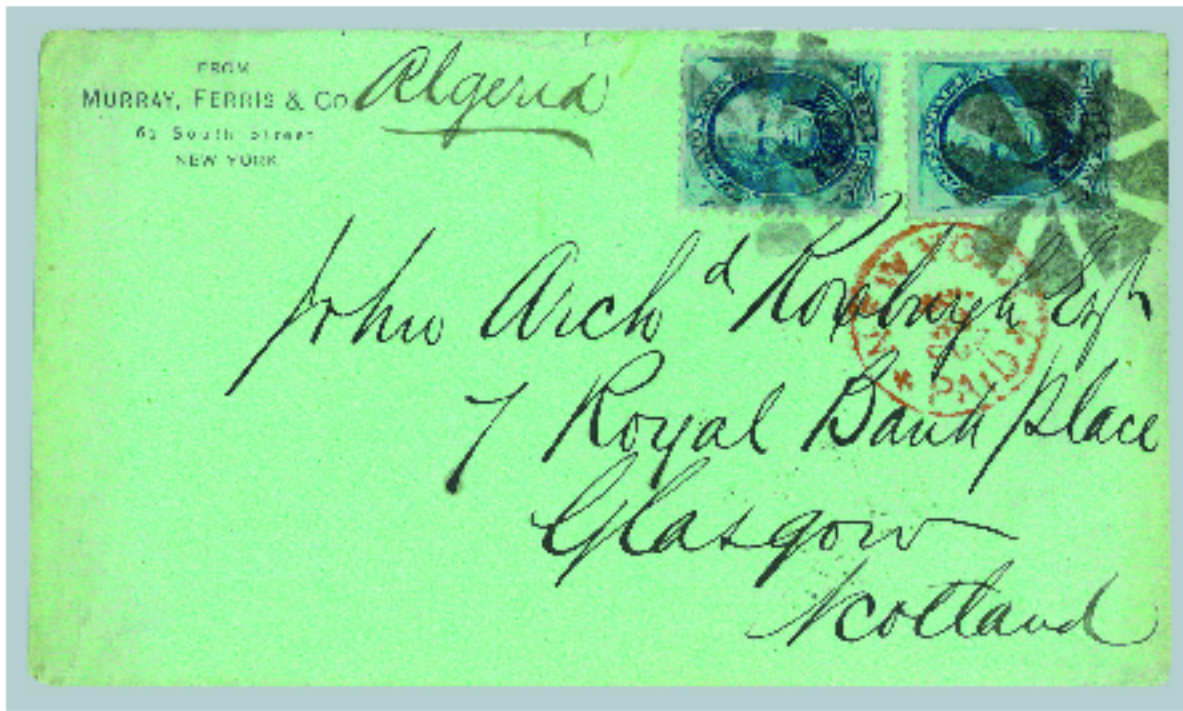 FROM
MURRAY, FERRIS & Co
62 South Street
NEW YORK
Algeria
NEW YORK
PAID
John Archd Roxburgh Esqr
7 Royal Bank Place
Glasgow
Scotland